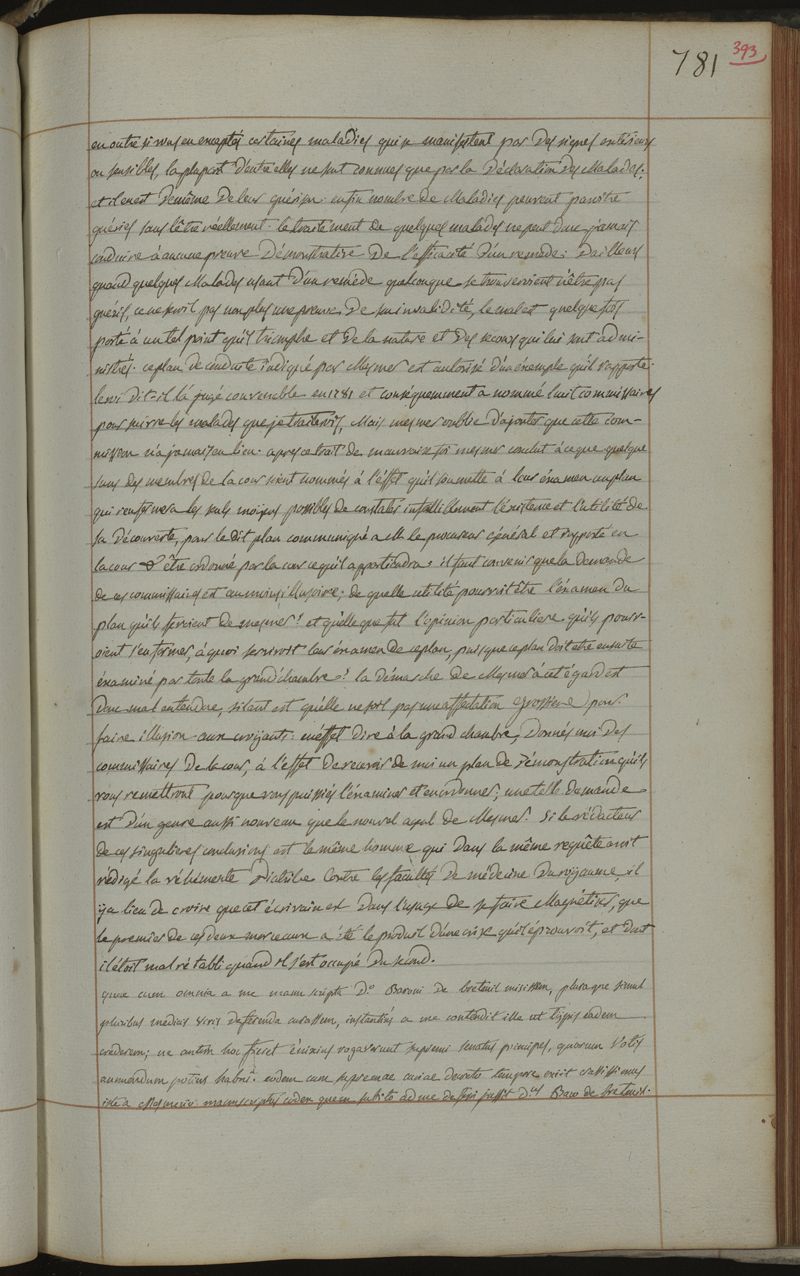 781 393
en outre si vous en exceptés certaines maladies qui se manifestent par des signes extérieurs
ou sensibles, la plupart d'entre elles ne sont connues que par la déclaration des Malades,
et il en est de même de leur guérison. enfin nombre de Maladies peuvent paroître
guéries sans l'être réellement. le traitement de quelques malades ne peut donc jamais
conduire à aucune preuve Démonstrative De l'efficacité d'un remede. D'ailleurs
quand quelques Malades usant D'un remède quelconque se trouveroient n'être pas
guéris, ce ne seroit pas non plus une preuve de son invalidité, le mal est quelque fois
porté à un tel point qu'il triomphe et de la nature et des secours qui lui sont admi-
nistrés. ce plan de conduite indiqué par Mesmer est autorisé d'un exemple qu'il rapporte.
le roi dit-il l'a jugé convenable en 1781 et conséquemment a nommé huit commissaires
pour suivre les malades que je traiterois, Mais mesmer oublie d'ajouter que cette com-
mission n'a jamais eu lieu. apres ce trait de mauvaise foi mesmer conclut à ce que quelques
uns des membres de la cour soient nommés à l'effet qu'il soumette à leur examen un plan
qui renfermera les seuls moiens possibles de constater infailliblement l'existence et l'utilité de
sa Découverte, pour le dit plan communiqué a M. le procureur général et rapporté en
la cour être ordonné par la cour ce qu'il appartiendra. il faut convenir que la demande
de ces commissaires est au moins illusoire; de quelle utilité pourroit être l'éxamen du
plan qu'ils feroient de mesmer? et quelle que fut l'opinion particuliere qu'ils pour-
oient s'en former, à quoi serviroit leur éxamen de ce plan, puisque ce plan doit etre ensuite
éxaminé par toute la grand'chambre? la démarche de Mesmer à cet égard est
donc mal entendue, si tant est qu'elle ne soit pas une affectation grossiere pour
faire illusion aux croyants. en effet dire à la grand chambre, Donnés moi des
commissaires de la cour, à l'effet de recevoir de moi un plan de Démonstration qu'ils
vous remettront pour que vous puissiés l'éxaminer et en ordonner; une telle demande
est d'un genre aussi nouveau que le nouvel apul de Mesmer. Si le rédacteur
de ces singulieres conclusions est le même homme qui dans la même requête avoit
rédigé la véhémente Diatribe contre les facultés de médecine du royaume, il
y a lieu de croire que cet écrivain est dans l'usage de se faire Magnétiser, que
le premier de ces deux morceaux a été le produit d'une crise qu'il éprouvoit, et dont
il étoit mal rétabli quand il s'est occupé du second.
quae cum omnia a me manu scripta D.º Baroni de breteuil misissem, pluraque simul
pluribus mediis viris deferenda curassem, instantiùs a me contendit ille ut typis eadem
crederem; ne autem hoc fieret énixius rogaverunt supremi senatus principes, quorum votis
annuendum potius habui. eodem cum supremae curiae decreto tempore exiit crassissimus
ille a Mesmerio manuscriptus codex quem subito ad me deferri jussit D.us Baro de breteuil.